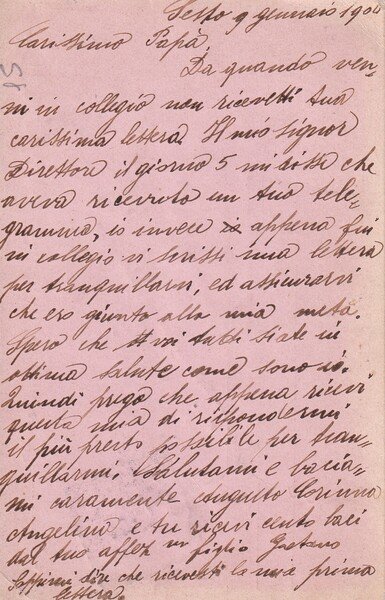 Sesto 9 gennaio 1904
Carissimo Papà
Da quando ven-
ni in collegio non ricevetti tua
carissima lettera. Il mio signor
Direttore il giorno 5 mi disse che
aveva ricevuto un tuo tele-
gramma, io invece appena fui
in collegio vi scrissi una lettera
per tranquillarvi, ed assicurarvi
che ero giunto alla mia meta.
Spero che voi tutti siate in
ottima salute come sono io.
Quindi prego che, appena ricevi
questa mia di rispondermi
il più presto possibile per tran-
quillarmi. Salutami e bacia-
mi caramente Augusto Corinna
Angelina e tu ricevi cento baci
dal tuo affez mo figlio Gaetano
Sappimi dire che ricevesti la mia prima
lettera.
15